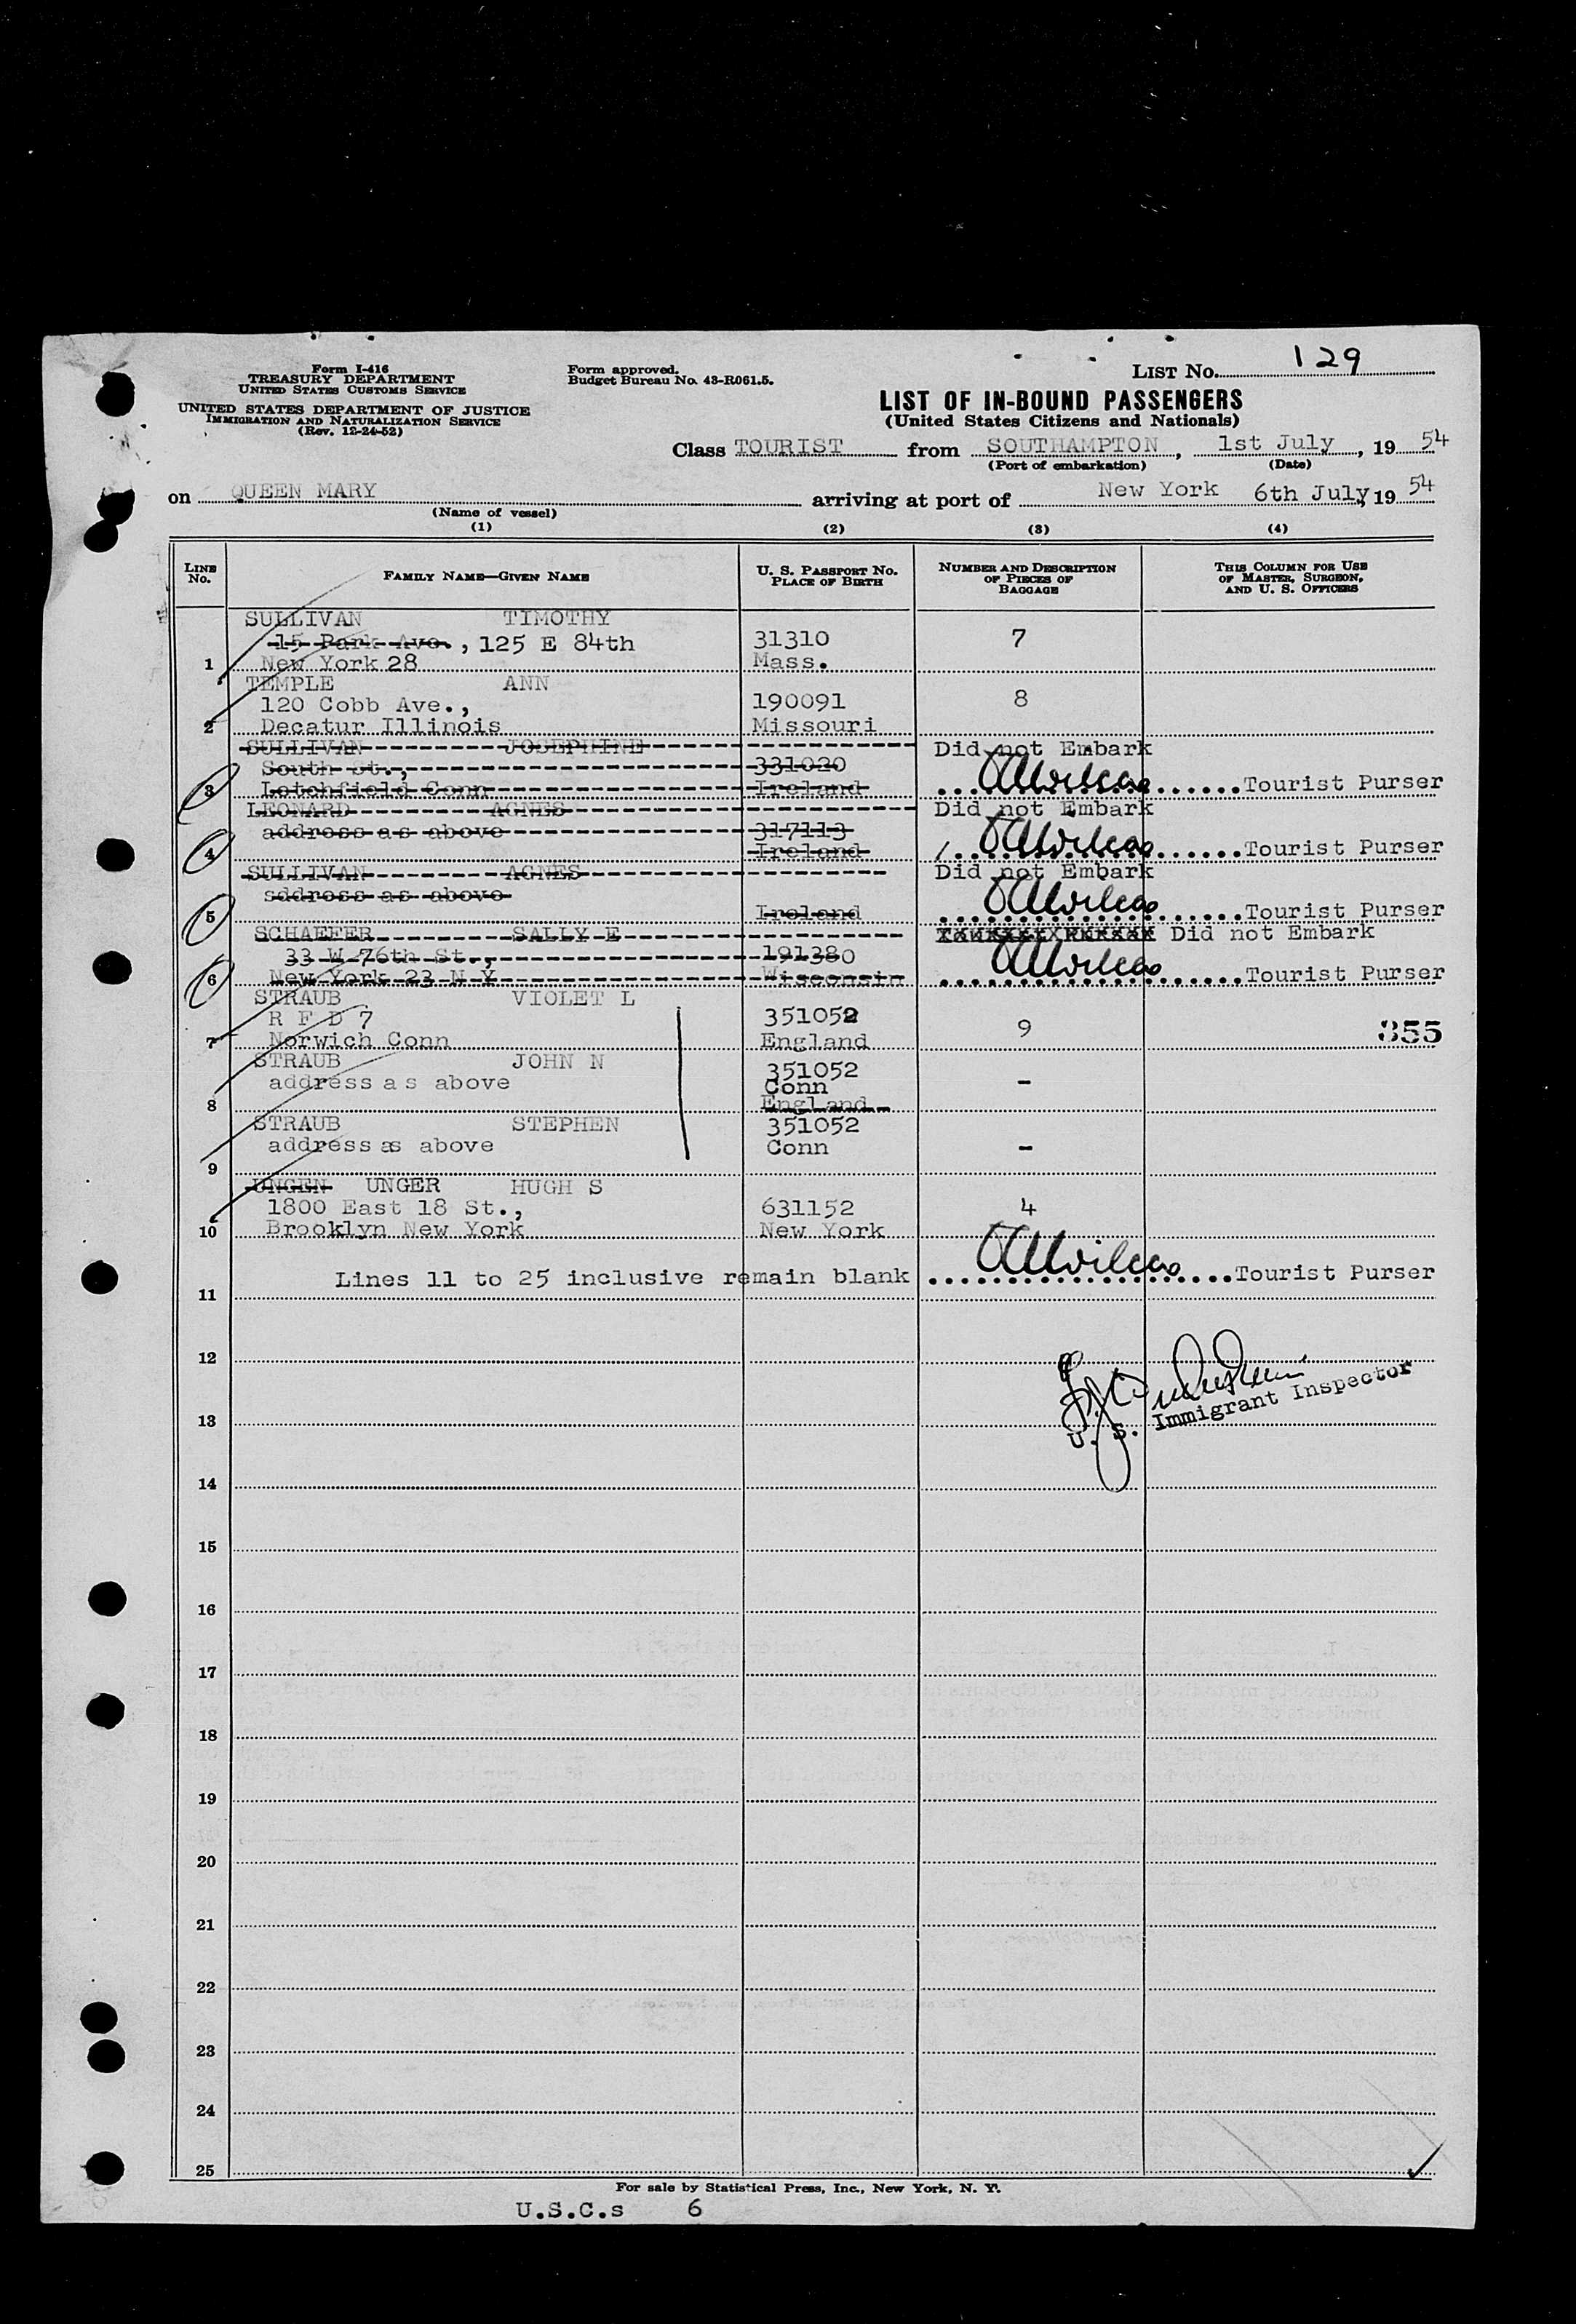 Form I-416
TREASURY DEPARTMENT
UNITED STATES CUSTOMS SERVICE
UNITED STATES DEPARTMENT OF JUSTICE
IMMIGRATION AND NATURALIZATION SERVICE
(Rev. 12-24-52)
Form approved.
Budget Bureau No. 43-R061.5.
LIST No. 129
LIST OF IN-BOUND PASSENGERS
(United States Citizens and Nationals)
Class TOURIST from SOUTHAMPTON, 1st July, 19 54
(Port of embarkation) (Date)
on QUEEN MARY arriving at port of New York 6th July, 19 54
(Name of vessel)
(1) (2) (3) (4)
LINE No. FAMILY NAME—GIVEN NAME U. S. PASSPORT No. PLACE OF BIRTH NUMBER AND DESCRIPTION OF PIECES OF BAGGAGE THIS COLUMN FOR USE OF MASTER, SURGEON, AND U. S. OFFICERS
SULLIVAN TIMOTHY
15 Park Ave., 125 E 84th 31310 7
1 New York 28 Mass.
TEMPLE ANN
120 Cobb Ave., 190091 8
2 Decatur Illinois Missouri
SULLIVAN JOSEPHINE Did not Embark
South St., 331020
3 Letchfield Conn Ireland Tourist Purser
LEONARD AGNES Did not Embark
address as above 317113
4 Ireland Tourist Purser
SULLIVAN AGNES Did not Embark
sddress as above
5 Ireland Tourist Purser
SCHAEFER SALLY E Did not Embark
33 W 76th St., 191380
6 New York 23 N Y Wisconsin Tourist Purser
STRAUB VIOLET L
R F D 7 351052 9 355
7 Norwich Conn England
STRAUB JOHN N 351052
address as above Conn -
8 England
STRAUB STEPHEN 351052
address as above Conn -
9
UNGEN UNGER HUGH S
1800 East 18 St., 631152 4
10 Brooklyn New York New York
Lines 11 to 25 inclusive remain blank Tourist Purser
11
12
U. S. Immigrant Inspector
13
14
15
16
17
18
19
20
21
22
23
24
25
For sale by Statistical Press, Inc., New York, N. Y.
U.S.C.s 6